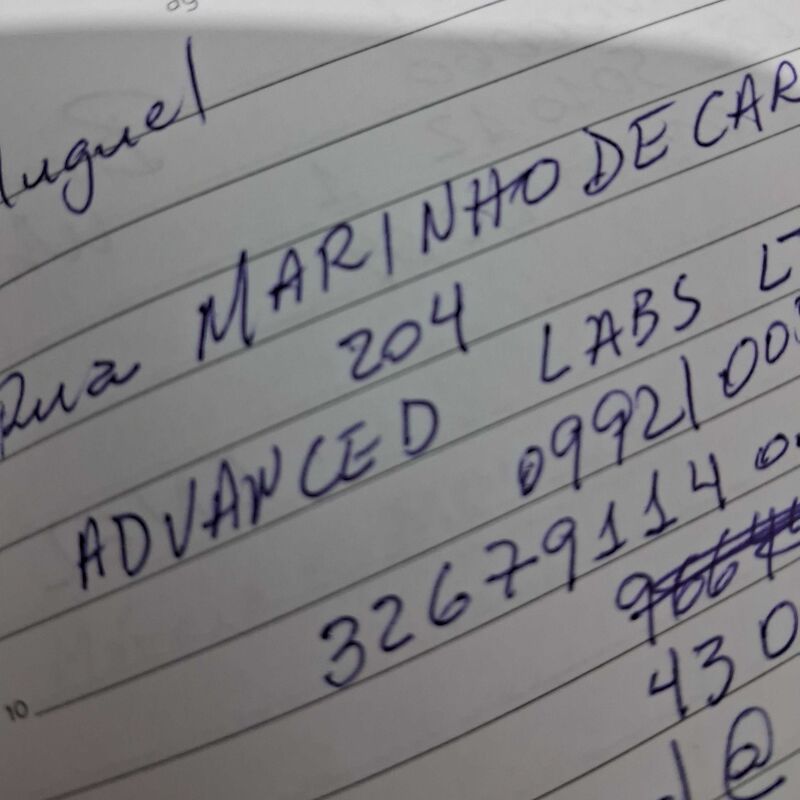 09
Muguel
Rua MARINHO DE CAR
204
ADVANCED LABS LT
09921003
32679114 00
43 0
10
@